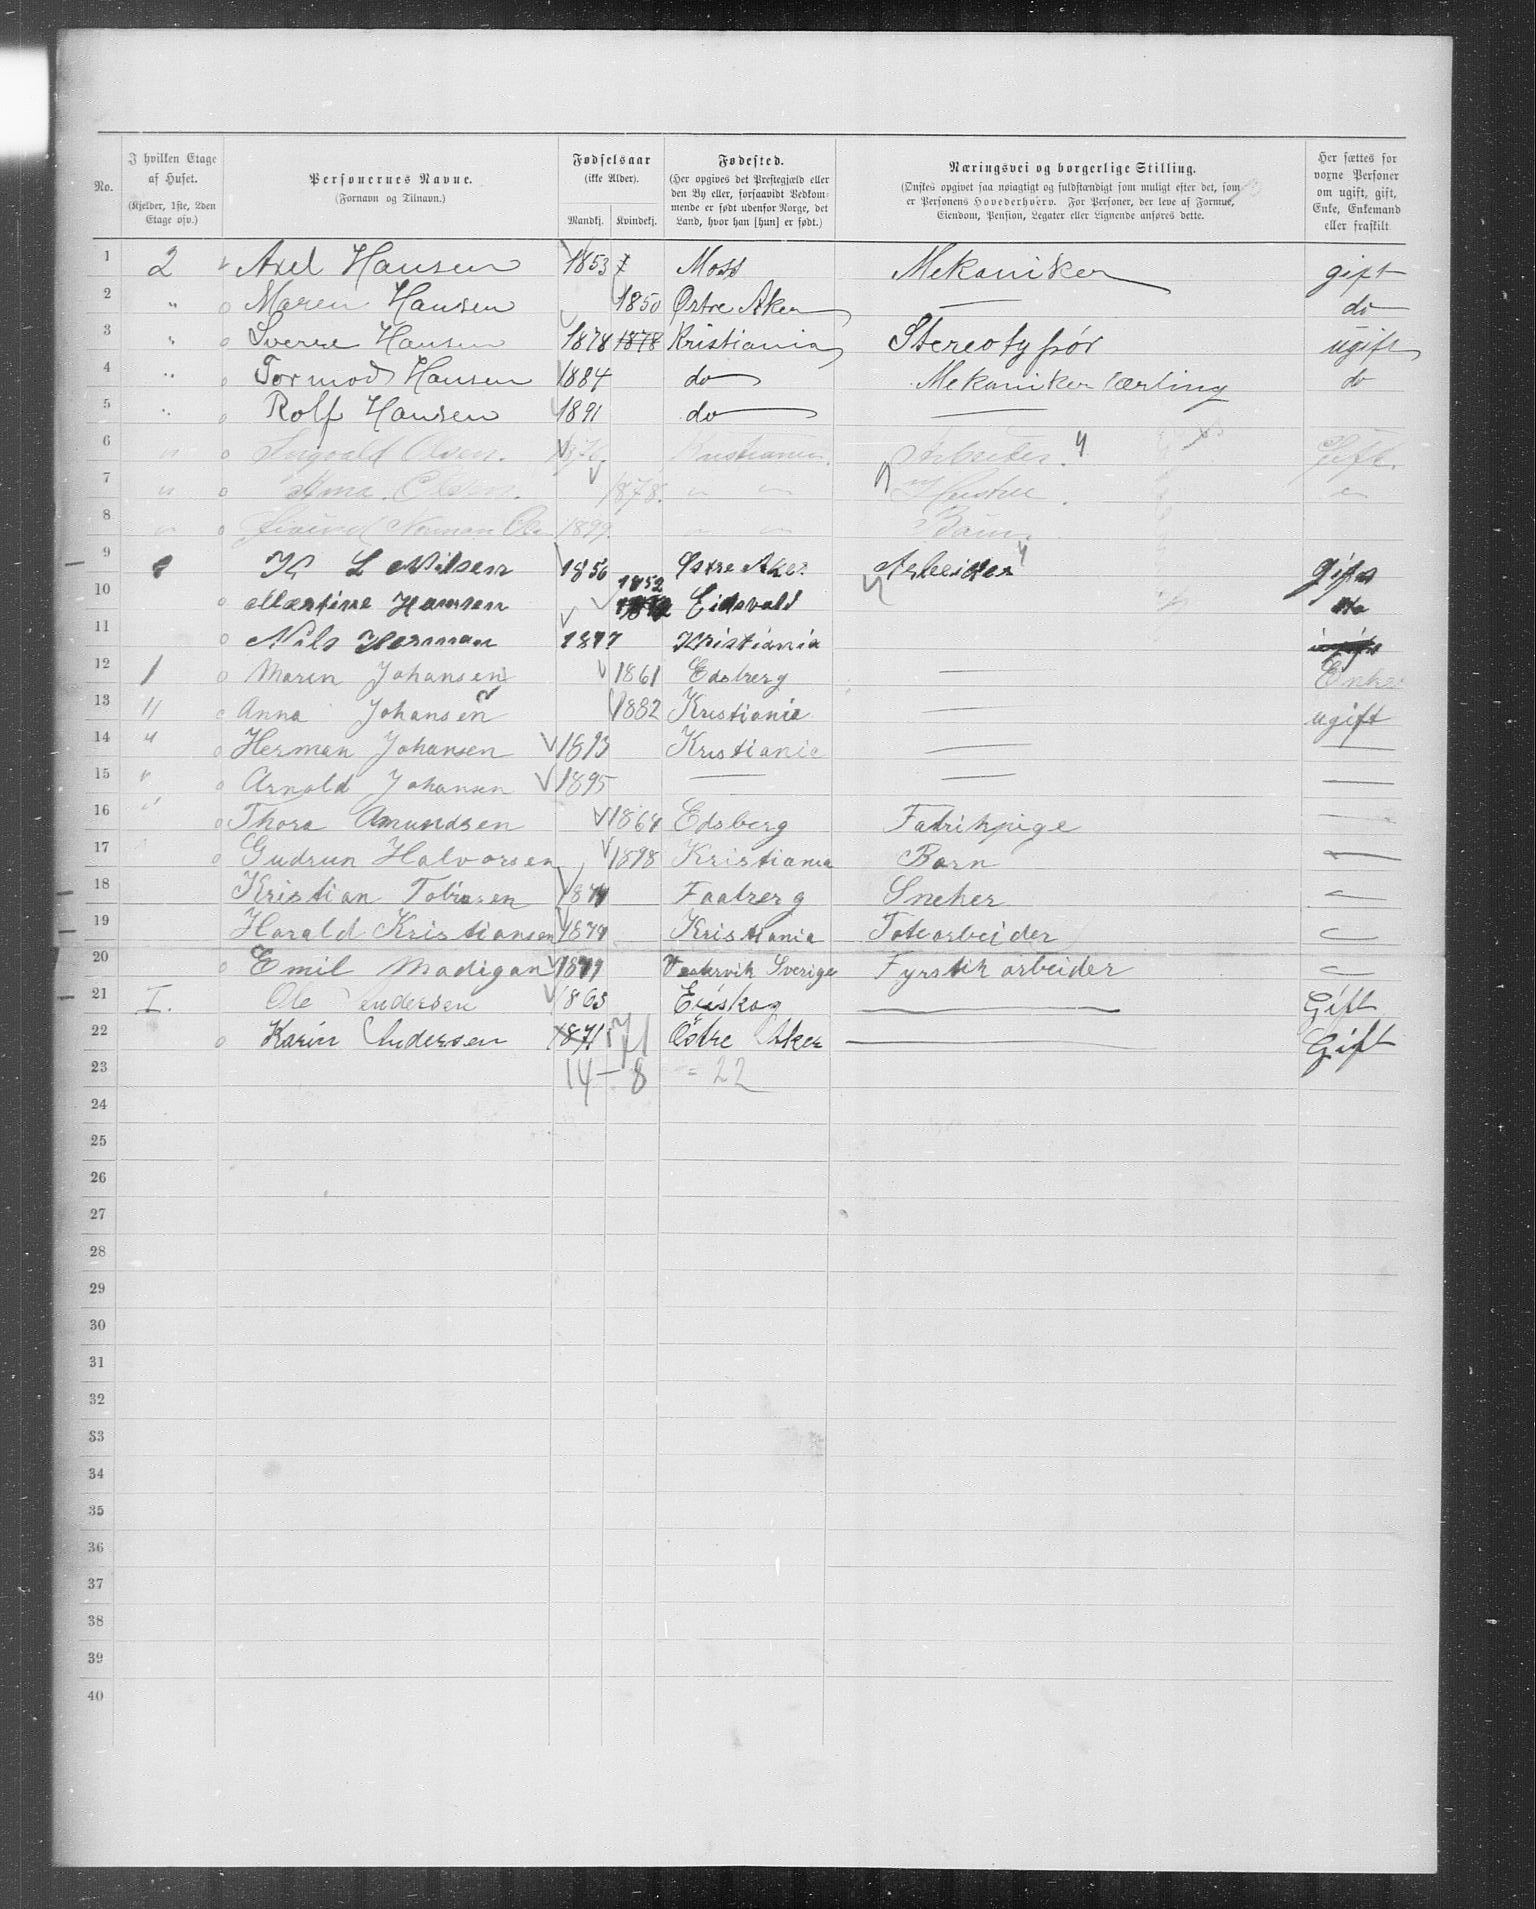 No. | I hvilken Etage af Huset. (Kjelder, 1ste, 2den Etage osv.) | Personernes Navne. (Fornavn og Tilnavn.) | Fødselsaar (ikke Alder). Mandkj. Kvindekj. | Fødested. (Her opgives det Prestegjæld eller den By eller, forsaavidt Vedkommende er født udenfor Norge, det Land, hvor han [hun] er født.) | Næringsvei og borgerlige Stilling. (Ønskes opgivet saa nøiagtigt og fuldstændigt som muligt efter det, som er Personens Hovederhverv. For Personer, der leve af Formue, Eiendom, Pension, Legater eller Lignende anføres dette. | Her sættes for voxne Personer om ugift, gift, Enke, Enkemand eller fraskilt
1 2 Axel Hansen 1853 Moss Mekaniker gift
2 " Maren Hansen 1850 Østre Aker — do
3 " Sverre Hansen 1878 1878 Kristiania Stereotypør ugift
4 " Tormod Hansen 1884 do Mekaniker lærling do
5 " Rolf Hansen 1891 do —
6 " Olsen. 1876 Kristiania. Arbeider. Gift.
7 " Anna Olsen. 1878. " " Hustru "
8 " Norman 1899. " " Barn.
9 K L Nilsen 1856 Østre Aker Arbeider gift
10 Martine Hansen 1852 Eidsvold do
11 Nils Herman 1877 Kristiania
12 1 Maren Johansen 1861 Edsberg — Enke
13 " Anna Johansen 1882 Kristiania — ugift
14 " Herman Johansen 1893 Kristiania — —
15 " Arnold Johansen 1895 — — —
16 " Thora Amundsen 1864 Edsberg Fabrikpige —
17 Gudrun Halvorsen 1898 Kristiania Barn —
18 Kristian Tobiasen Faaberg Sneker —
19 Harald Kristiansen 1879 Kristiania Totearbeider —
20 Emil Madigan 1879 Vestervik Sverige Fyrstik arbeider —
21 I. Ole Andersen 1863 Eidskog — Gift
22 Karin Andersen 1871 71 Östre Aker — Gift
23 14 — 8 = 22
24
25
26
27
28
29
30
31
32
33
34
35
36
37
38
39
40